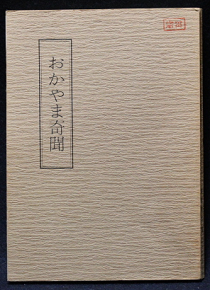 おかやま奇聞